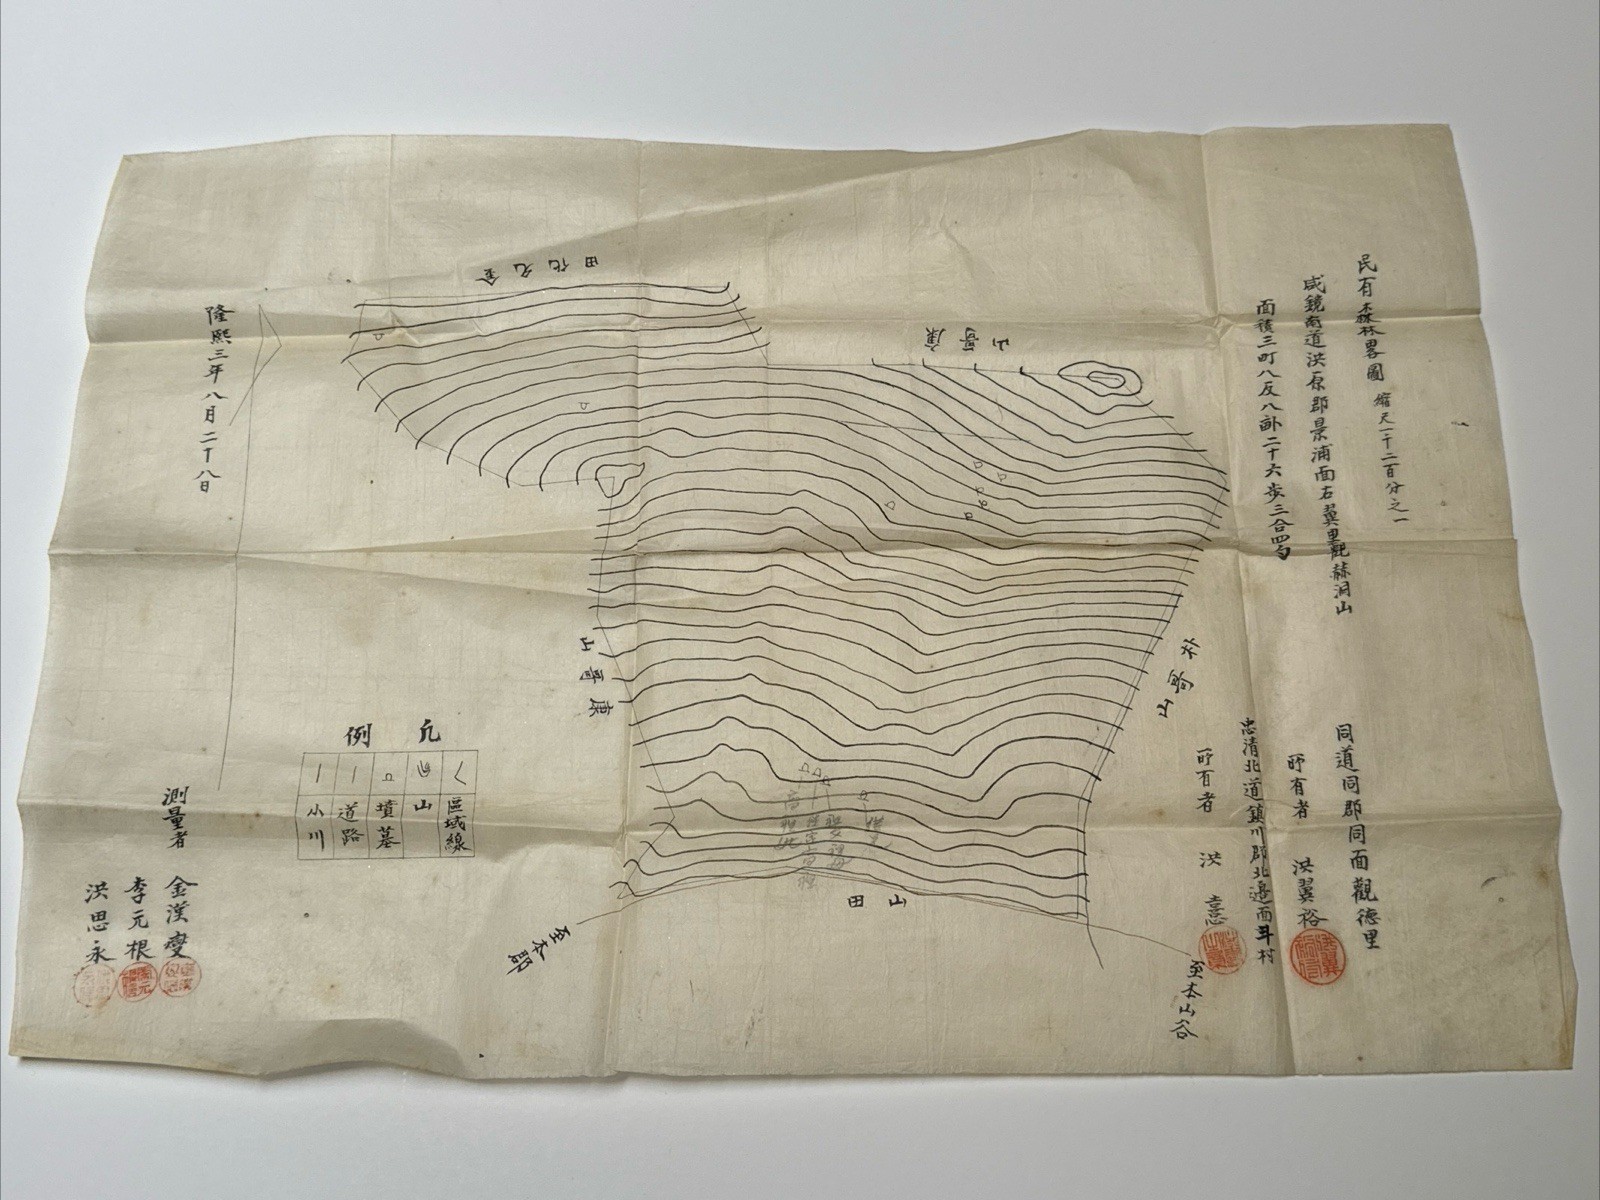 民有森林畧圖 縮尺一千二百分之一
咸鏡南道洪原郡景浦面右翼里觀赫洞山
面積三町八反八畝二十六步三合四勺
同道同郡同面觀德里
所有者 洪翼裕
忠清北道鎮川郡北邊面斗村
所有者 洪憙
至本山谷
康哥山
山田
康哥山
至本郡
凡例
區域線
山
墳墓
道路
小川
隆熙三年八月二十八日
測量者 金漢燮
李元根
洪思永